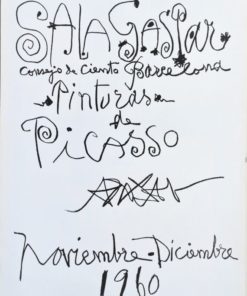 SALA GASPAR
Consejo de Ciento Barcelona
Pinturas
de
PICASSO
Noviembre-Diciembre
1960